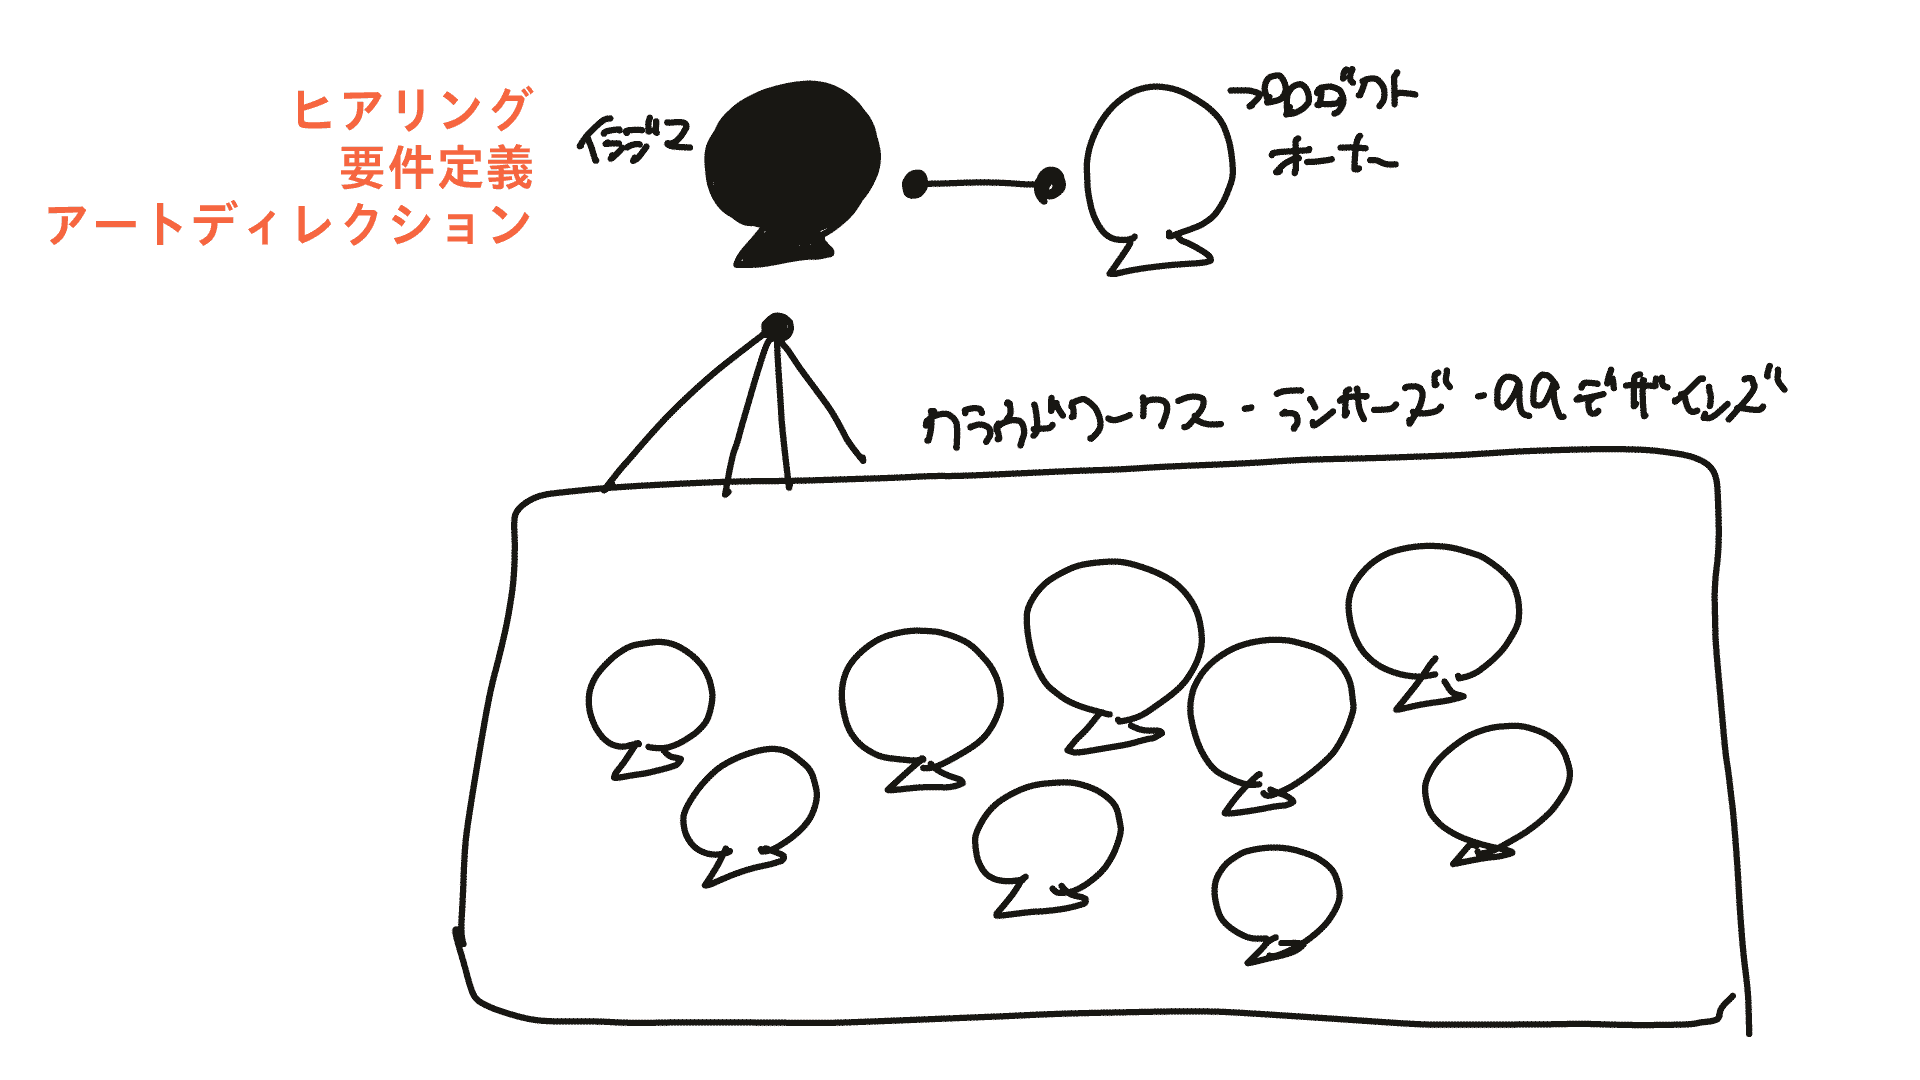 ヒアリング
要件定義
アートディレクション
イラデス
→プロダクト
オーナー
クラウドワークス・ランサーズ・99デザインズ